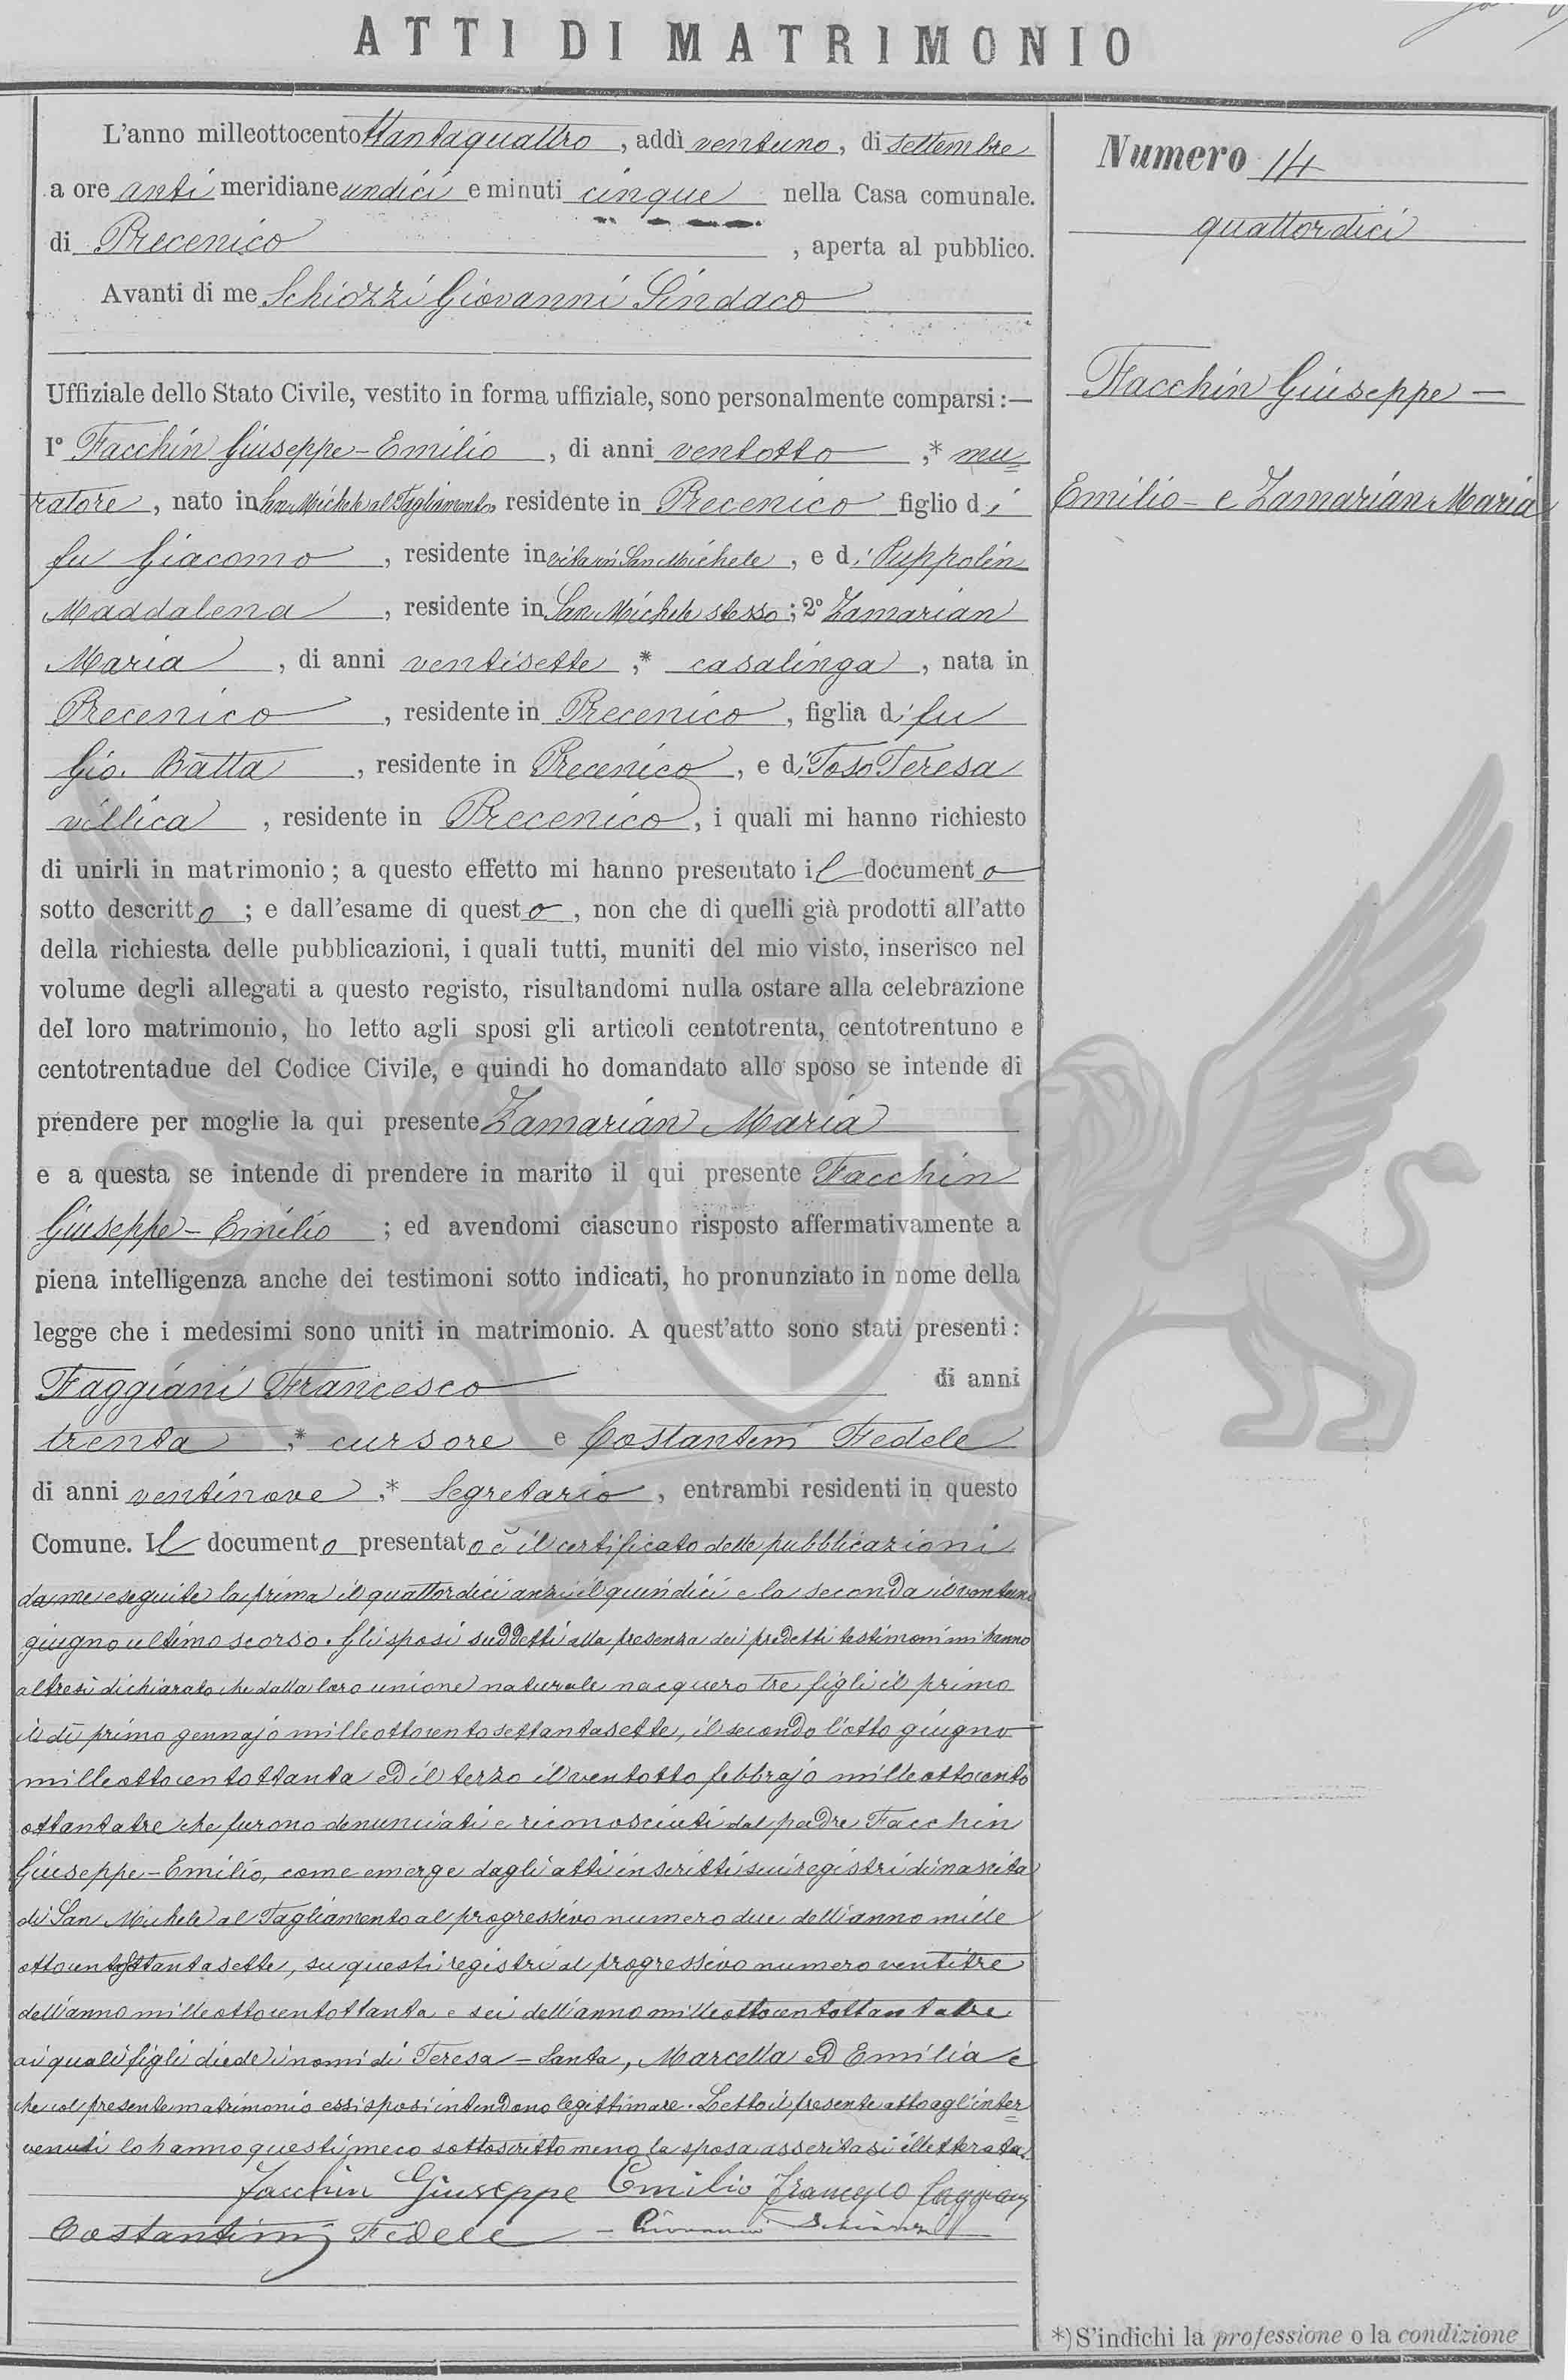 ATTI DI MATRIMONIO
L'anno milleottocentottantaquattro, addì ventuno, di Settembre
a ore anti meridiane undici e minuti cinque nella Casa comunale.
di Precenico, aperta al pubblico.
Avanti di me Schiozzi Giovanni Sindaco
Uffiziale dello Stato Civile, vestito in forma uffiziale, sono personalmente comparsi :—
1° Facchin Giuseppe-Emilio, di anni ventotto,* mu=
ratore, nato in San Michele al Tagliamento residente in Precenico figlio di
fu Giacomo, residente in vita in San Michele, e di Puppolin
Maddalena, residente in San Michele stesso; 2° Zamarian
Maria, di anni ventisette,* casalinga, nata in
Precenico, residente in Precenico, figlia di fu
Gio. Batta, residente in Precenico, e di Toso Teresa
villica, residente in Precenico, i quali mi hanno richiesto
di unirli in matrimonio; a questo effetto mi hanno presentato il documento
sotto descritto; e dall'esame di questo, non che di quelli già prodotti all'atto
della richiesta delle pubblicazioni, i quali tutti, muniti del mio visto, inserisco nel
volume degli allegati a questo registo, risultandomi nulla ostare alla celebrazione
del loro matrimonio, ho letto agli sposi gli articoli centotrenta, centotrentuno e
centotrentadue del Codice Civile, e quindi ho domandato allo sposo se intende di
prendere per moglie la qui presente Zamarian Maria
e a questa se intende di prendere in marito il qui presente Facchin
Giuseppe-Emilio; ed avendomi ciascuno risposto affermativamente a
piena intelligenza anche dei testimoni sotto indicati, ho pronunziato in nome della
legge che i medesimi sono uniti in matrimonio. A quest'atto sono stati presenti:
Faggiani Francesco di anni
trenta,* cursore e Costantini Fedele
di anni ventinove,* Segretario, entrambi residenti in questo
Comune. Il documento presentato è il certificato delle pubblicazioni
da me eseguite la prima il quattordici anzi il quindici e la seconda il ventuno
giugno ultimo scorso. Gli sposi suddetti alla presenza dei predetti testimoni mi hanno
altresì dichiarato che dalla loro unione naturale nacquero tre figli il primo
il dì primo gennajo milleottocentosettantasette, il secondo l'otto giugno
milleottocentottanta ed il terzo il ventotto febbrajo milleottocento
ottantatre che furono denunciati e riconosciuti dal padre Facchin
Giuseppe-Emilio, come emerge dagli atti inscritti sui registri di nascita
di San Michele al Tagliamento al progressivo numero due dell'anno mille
ottocentosettantasette, su questi registri al progressivo numero ventitre
dell'anno milleottocentottanta e sei dell'anno milleottocentottantatre
ai quali figli diede i nomi di Teresa-Santa, Marcella ed Emilia e
che col presente matrimonio essi sposi intendono legittimare. Letto il presente atto agl'inter=
venuti lo hanno questi meco sottoscritto meno la sposa asseritasi illetterata.
Facchin Giuseppe Emilio Francesco Faggiani
Costantini Fedele — Giovanni Schiozzi
Numero 14
quattordici
Facchin Giuseppe —
Emilio - e Zamarian Maria
*) S'indichi la professione o la condizione